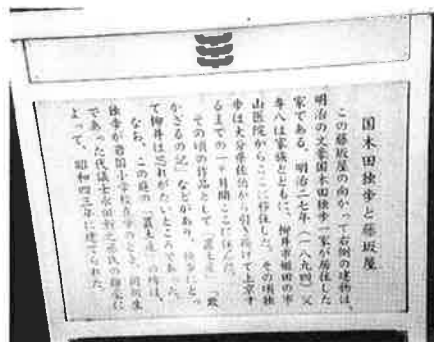 国木田独歩と藤坂屋
この藤坂屋の向かって右側の建物は、
明治の文豪国木田独歩一家が居住した
家である。明治二七年（一八九四）父
専八は家族とともに、柳井市姫田の市
山医院からここに移住した。その頃独
歩は大分県佐伯から引き揚げて上京す
るまでの一ヶ月間ここに住んだ。
その頃の作品として「置土産」「欺
かざるの記」などがあり、独歩にとっ
て柳井は忘れがたいところであった。
なお、この庭の「置土産」の碑は、
独歩が岩国小学校在学のとき、同級生
であった代議士永田新之丞氏の揮毫に
よって、昭和四三年に建てられた。